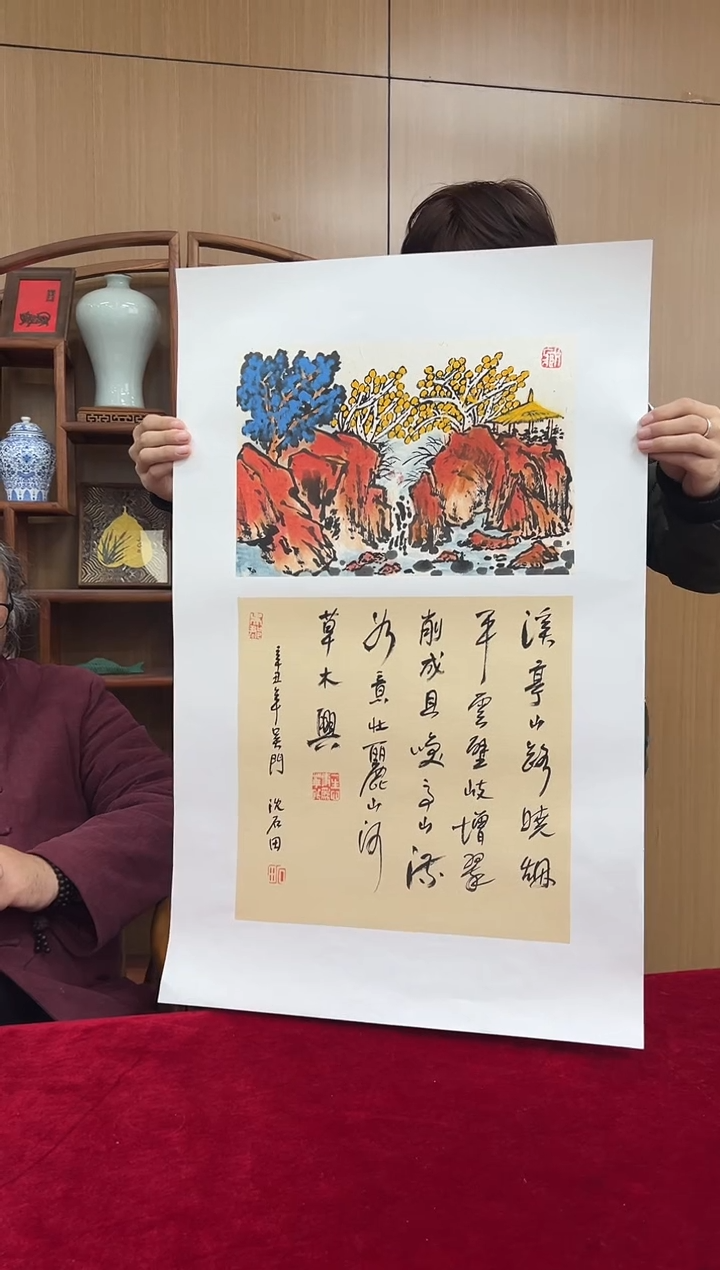 溪亭山路曉烟
平雲壁岐增翠
削成且喚高山流
水意壯麗山河
草木興
辛丑年吳門 沈石田